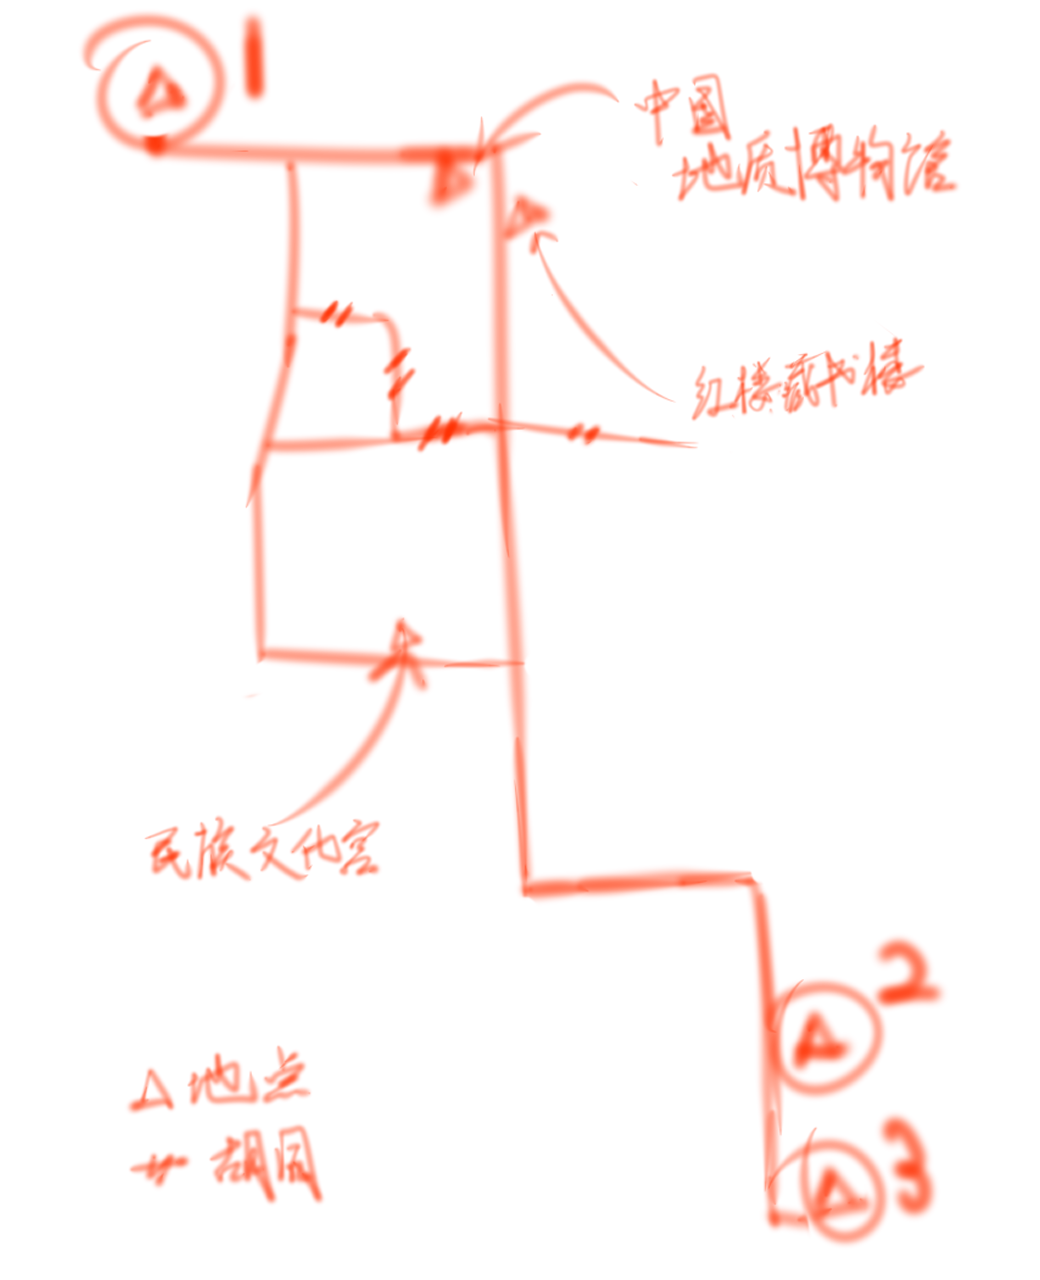 1
中国
地质博物馆
红楼藏书楼
民族文化宫
2
△ 地点
胡同
3